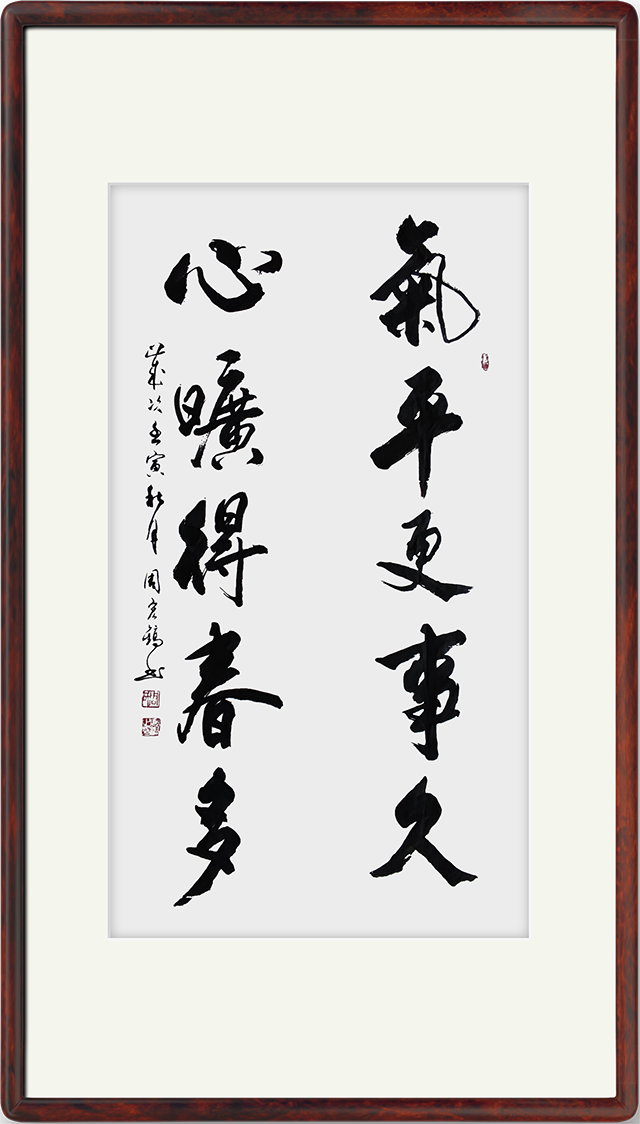 氣平更事久
心曠得春多
歲次壬寅秋月周宏鶴書